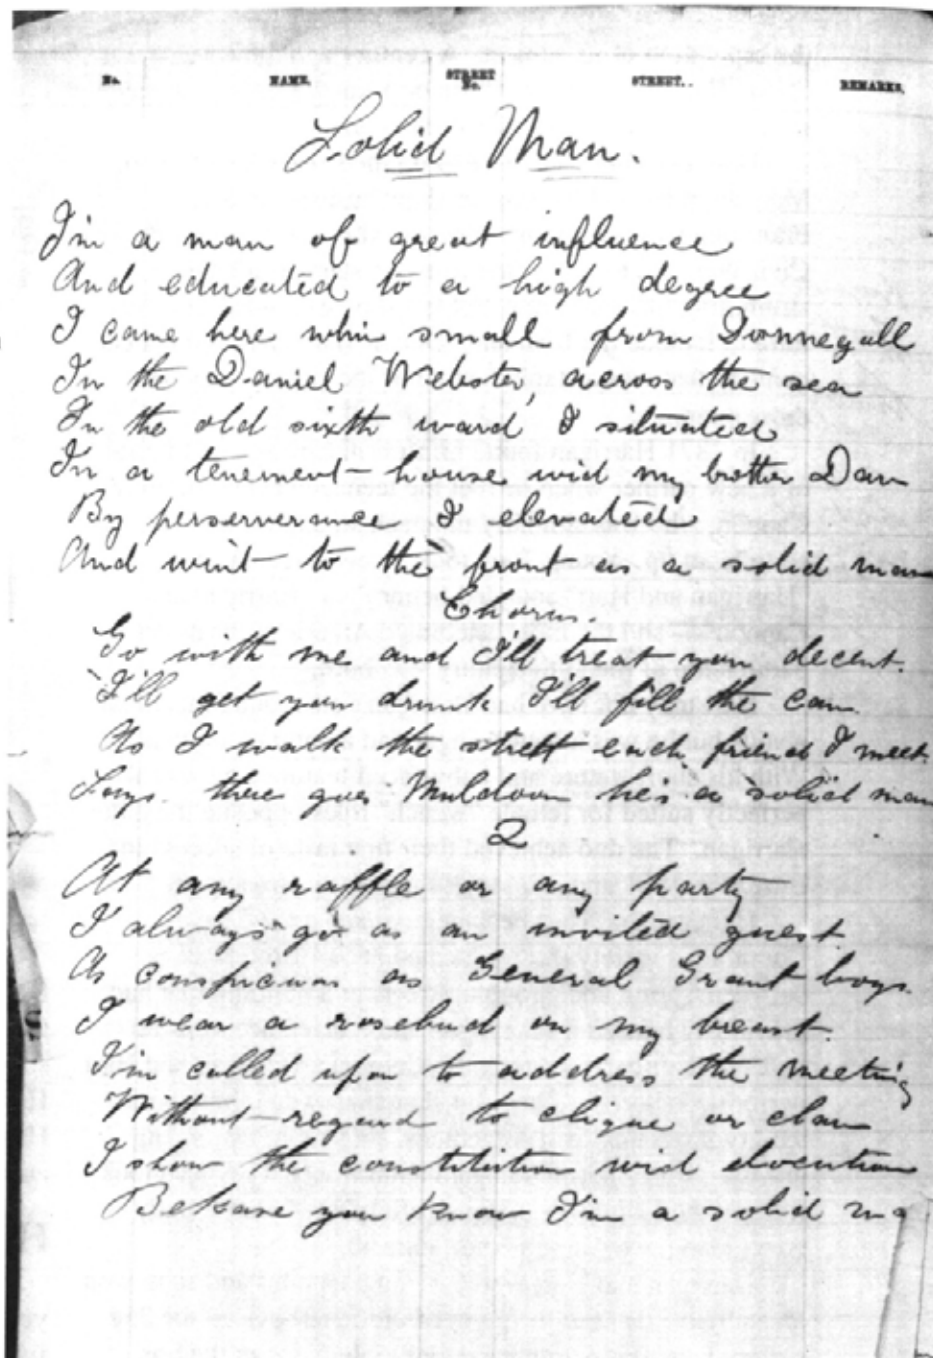 No. NAME. STREET No. STREET.. REMARKS.
Solid Man.
I'm a man of great influence
And educated to a high degree
I came here whin small from Donnegall
In the Daniel Webster, across the sea
In the old sixth ward I situated
In a tenement-house wid my brother Dan
By perserverance I elevated
And wint to the front as a solid man
Chorus.
Go with me and I'll treat you decent.
I'll get you drunk I'll fill the can
As I walk the strett each friend I meet
Says there goes Muldoon he's a solid man
2
At any raffle or any party
I always go as an invited guest.
As conspicuous as General Grant boys.
I wear a rosebud on my breast.
I'm called upon to address the meeting
Without regard to clique or clan
I show the constitution wid elocution
Bekase you know I'm a solid ma